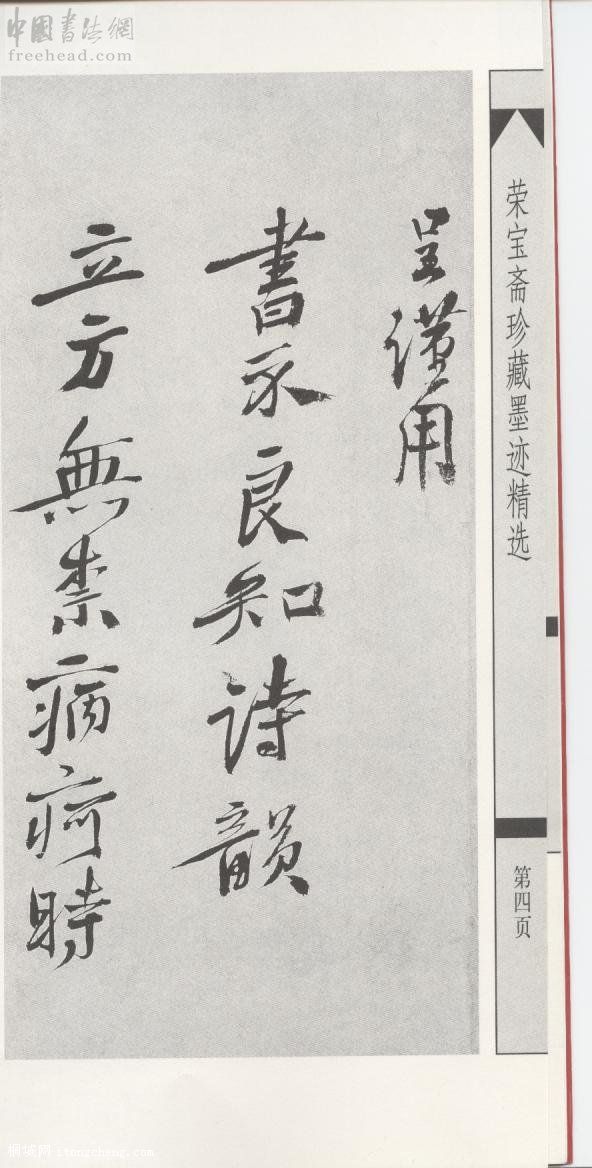 中國書法網
freehead.com
荣宝斋珍藏墨迹精选
第四页
呈用
書良知詩韻
立方無柰病疴時
桐城网 itongcheng.com